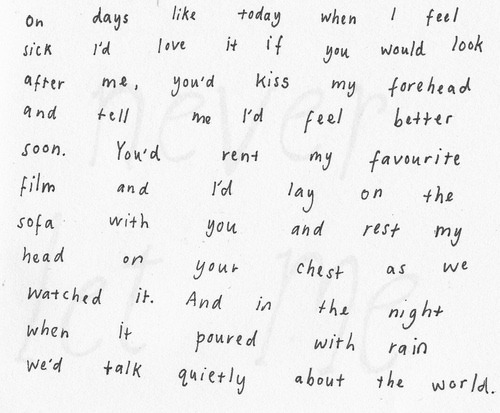 On days like today when I feel
sick I'd love it if you would look
after me, you'd kiss my forehead
and tell me I'd feel better
soon. You'd rent my favourite
film and I'd lay on the
sofa with you and rest my
head on your chest as we
watched it. And in the night
when it poured with rain
we'd talk quietly about the world.
never
let me